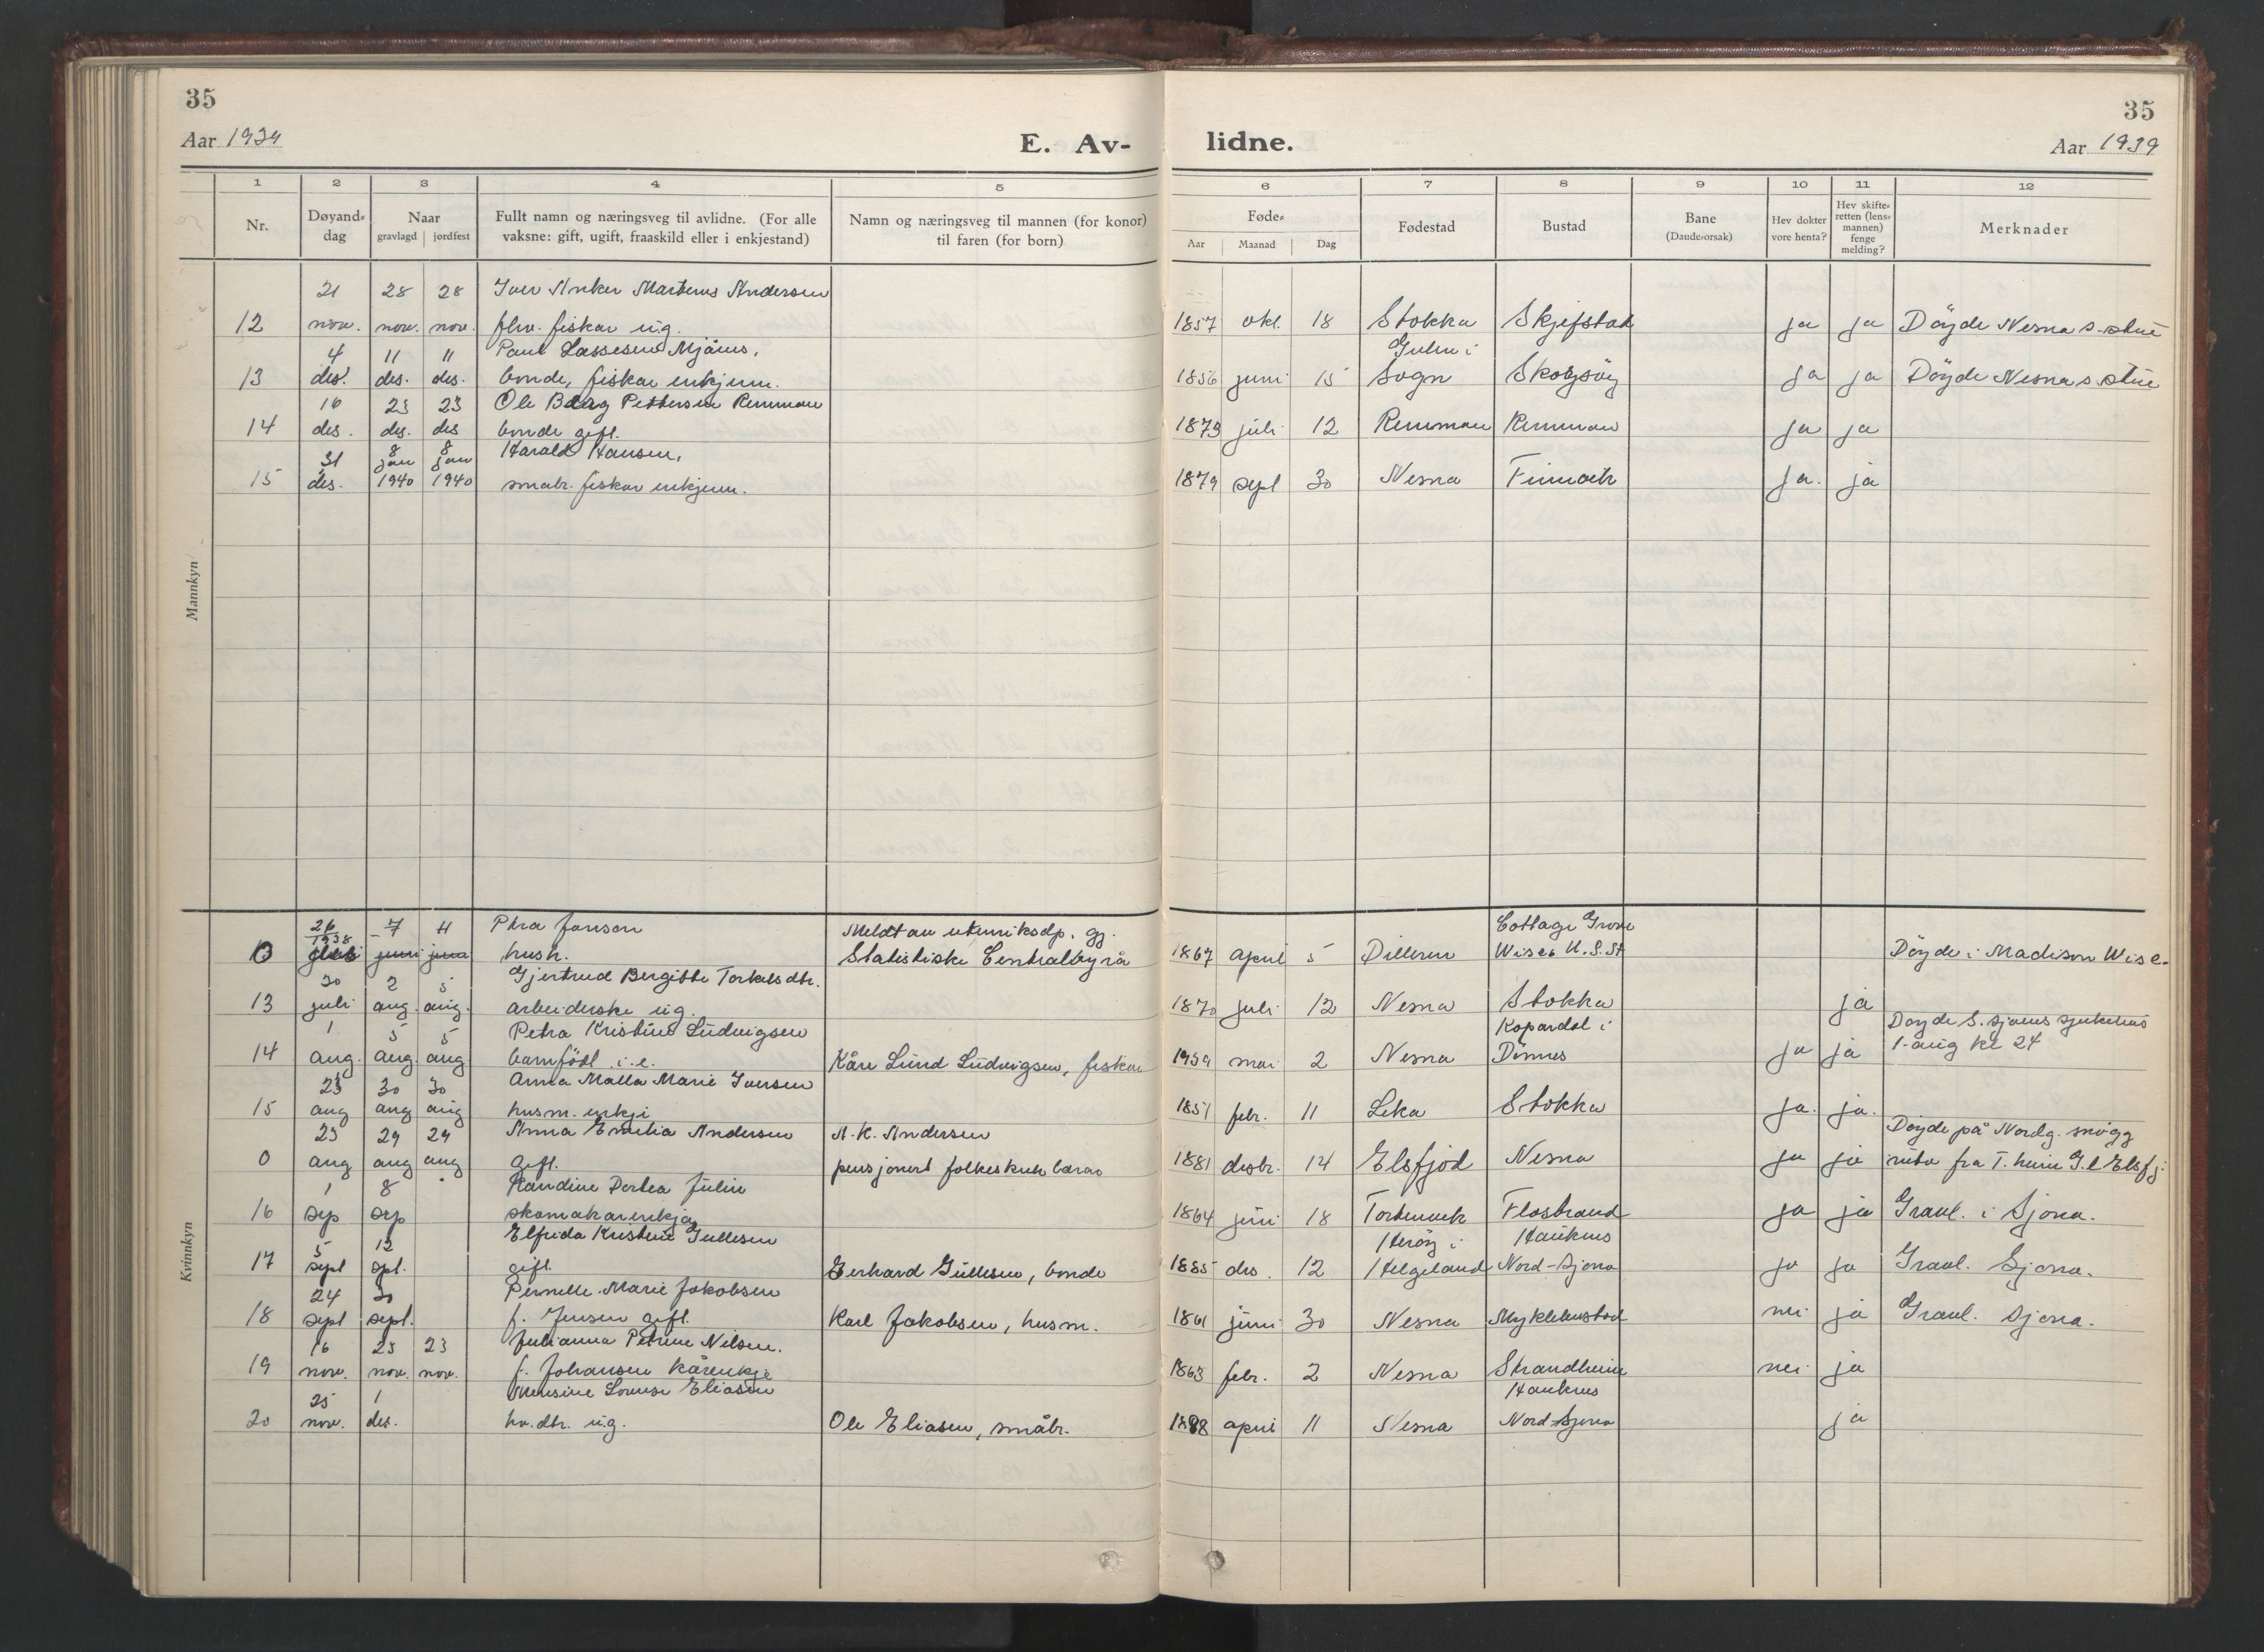 35
35
Aar 1939
E. Av-
lidne.
Aar 1939
1 2 3 4 5
6 7 8 9 10 11 12
Nr.
Døyand-dag
Naar
gravlagd jordfest
Fullt namn og næringsveg til avlidne. (For alle
vaksne: gift, ugift, fraaskild eller i enkjestand)
Namn og næringsveg til mannen (for konor)
til faren (for born)
Føde-
Aar Maanad Dag
Fødestad
Bustad
Bane
(Daude-orsak)
Hev dokter
vore henta?
Hev skifte-
retten (lens-
mannen)
fenge
melding?
Merknader
Mannkyn
21 28 28 Iver Anker Martinus Andersen
12 nov. nov. nov. fhv. fiskar ug. 1857 okt. 18 Stokka Skjefstad ja ja Döyde Nesna s.stue
4 11 11 Paul Lassesen Mjånes, Gulen i
13 des. des. des. bonde, fiskar enkjem. 1856 juni 15 Sogn ja ja Döyde Nesna s.stue
16 23 23 Ole Berg Pettersen Remman
14 des. des. des bonde gift. 1873 juli 12 Remman Remman ja ja
31 8 jan 8 jan Harald Hansen,
15 des. 1940 1940 småbr. fiskar enkjem. 1879 sept 30 Nesna ja. ja
Kvinnkyn
26 7 11 Petra Jonson Meldt av utenriksdp. gj. Cottage Grove
1938
0 juni juni hush. Statistiske Centralbyrå 1867 april 5 Dilleren Wisc. U.S.St Döyde i Madison Wisc.
30 2 5 Gjertrud Bergitte Torkelsdtr.
13 juli aug. aug. arbeiderske ug. 1870 juli 12 Nesna Stokka ja
1 5 5 Petra Kristine Ludvigsen Kopardal i Döyde S.sjøens sjukehus
14 aug. aug. aug barnfödt i.e. Kåre Lund Ludvigsen, fiskar 1939 mai 2 Nesna Dönnes ja ja 1-aug kl 24
23 30 30 Anna Malla Marie Iversen
15 aug aug aug husm. enkje 1851 febr. 11 Leka Stokka ja. ja.
23 29 29 Anna Emilia Andersen A.K. Andersen Döyde på Nordg. snögg
0 aug aug aug gift. pensjonert folkeskulelærar 1881 desbr. 14 Elsfjod Nesna ja ja ruta fra T.heim G.l Elsfj.
1 8 Randine Dortea Julin
16 sep sep skomakarenkja 1864 juni 18 Flostrand ja ja Gravl. i Sjona.
5 12 Elfrida Kristine Gullesen Heröy i Hauknes
17 sept spt. gift. Gerhard Gullesen, bonde 1885 des. 12 Helgeland Nord-Sjona ja ja Gravl. Sjona.
24 30 Pernelle Marie Jakobsen
18 sept sept. f. Jensen gift. Karl Jakobsen, husm. 1861 juni 30 Nesna Myklebustad nei ja Gravl. Sjona.
16 23 23 Julianna Petrine Nilsen.
19 nov. nov. nov. f. Johansen kårenkje 1863 febr. 2 Nesna Strandheim nei ja
25 1 Lovense Eliasen Hauknes
20 nov. des. hv.dtr. ug. Ole Eliasen, småbr. 1888 april 11 Nesna Nord-Sjona ja